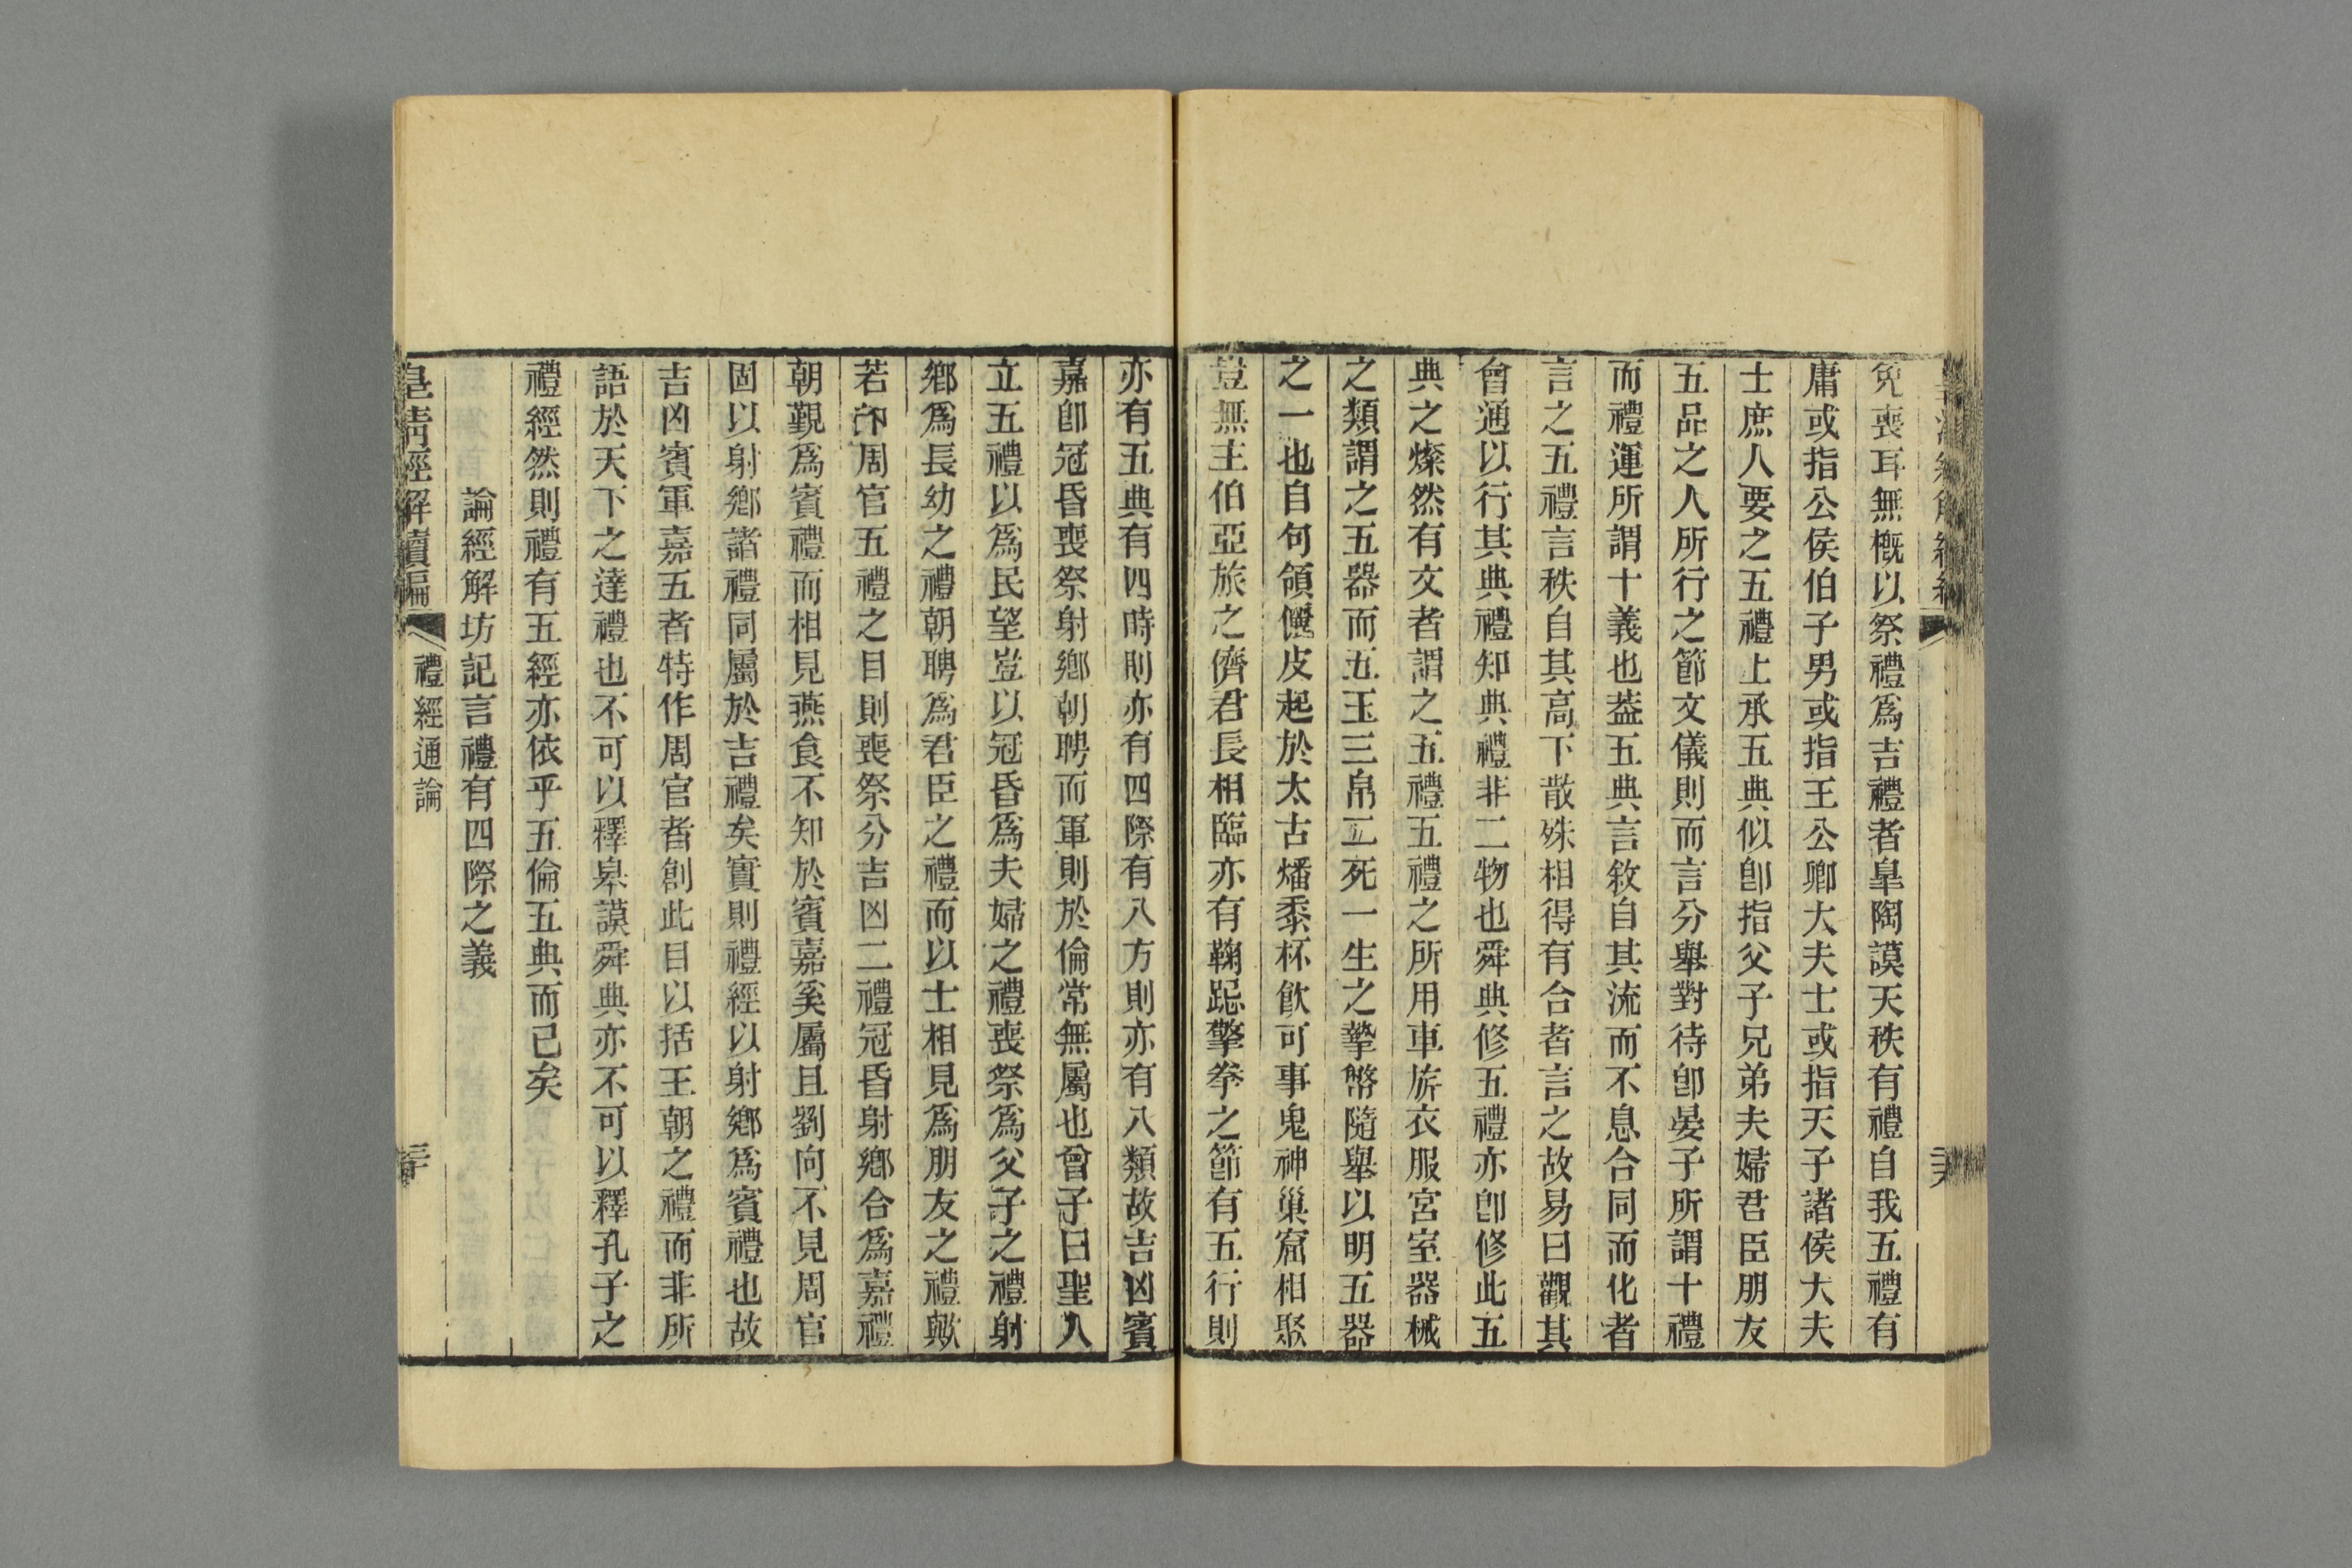 免喪耳無概以祭禮爲吉禮者臯陶謨天秩有禮自我五禮有
庸或指公侯伯子男或指王公卿大夫士或指天子諸侯大夫
士庶人要之五禮上承五典似卽指父子兄弟夫婦君臣朋友
五品之人所行之節文儀則而言分舉對待卽晏子所謂十禮
而禮運所謂十義也葢五典言敘自其流而不息合同而化者
言之五禮言秩自其高下散殊相得有合者言之故易曰觀其
會通以行其典禮知典禮非二物也舜典修五禮亦卽修此五
典之燦然有文者謂之五禮五禮之所用車旂衣服宮室器械
之類謂之五器而五玉三帛二死一生之摯幣隨舉以明五器
之一也自句領儷皮起於太古燔黍杯飮可事鬼神巢窟相聚
豈無主伯亞旅之儕君長相臨亦有鞠跽擎拳之節有五行則
亦有五典有四時則亦有四際有八方則亦有八類故吉凶賓
嘉卽冠昏喪祭射鄉朝聘而軍則於倫常無屬也曾子曰聖人
立五禮以爲民望豈以冠昏爲夫婦之禮喪祭爲父子之禮射
鄉爲長幼之禮朝聘爲君臣之禮而以士相見爲朋友之禮歟
若卽周官五禮之目則喪祭分吉凶二禮冠昏射鄉合爲嘉禮
朝覲爲賓禮而相見燕食不知於賓嘉奚屬且劉向不見周官
固以射鄉諸禮同屬於吉禮矣實則禮經以射鄉爲賓禮也故
吉凶賓軍嘉五者特作周官者創此目以括王朝之禮而非所
語於天下之達禮也不可以釋臯謨舜典亦不可以釋孔子之
禮經然則禮有五經亦依乎五倫五典而已矣
論經解坊記言禮有四際之義
皇淸經解續編
禮經通論